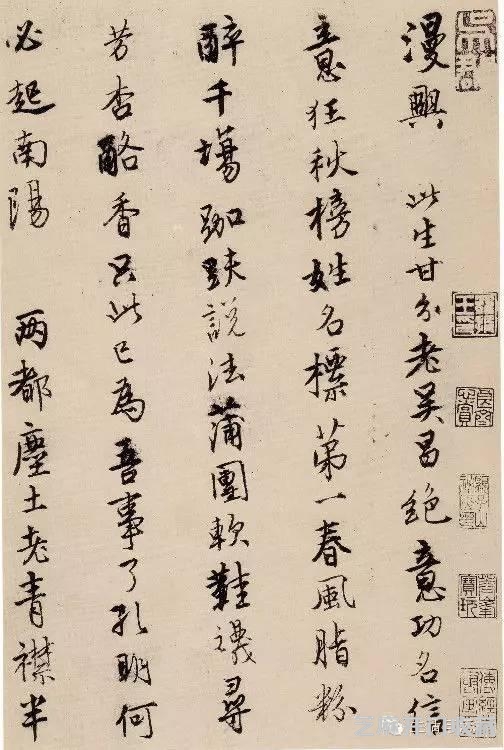 漫興 此生甘分老吴昌絕意功名信
意狂秋榜姓名標第一春風脂粉
醉千塲跏趺說法蒲團軟鞋襪尋
芳杏酪香只此已為吾事了孔明何
必起南陽 兩都塵土老青襟半